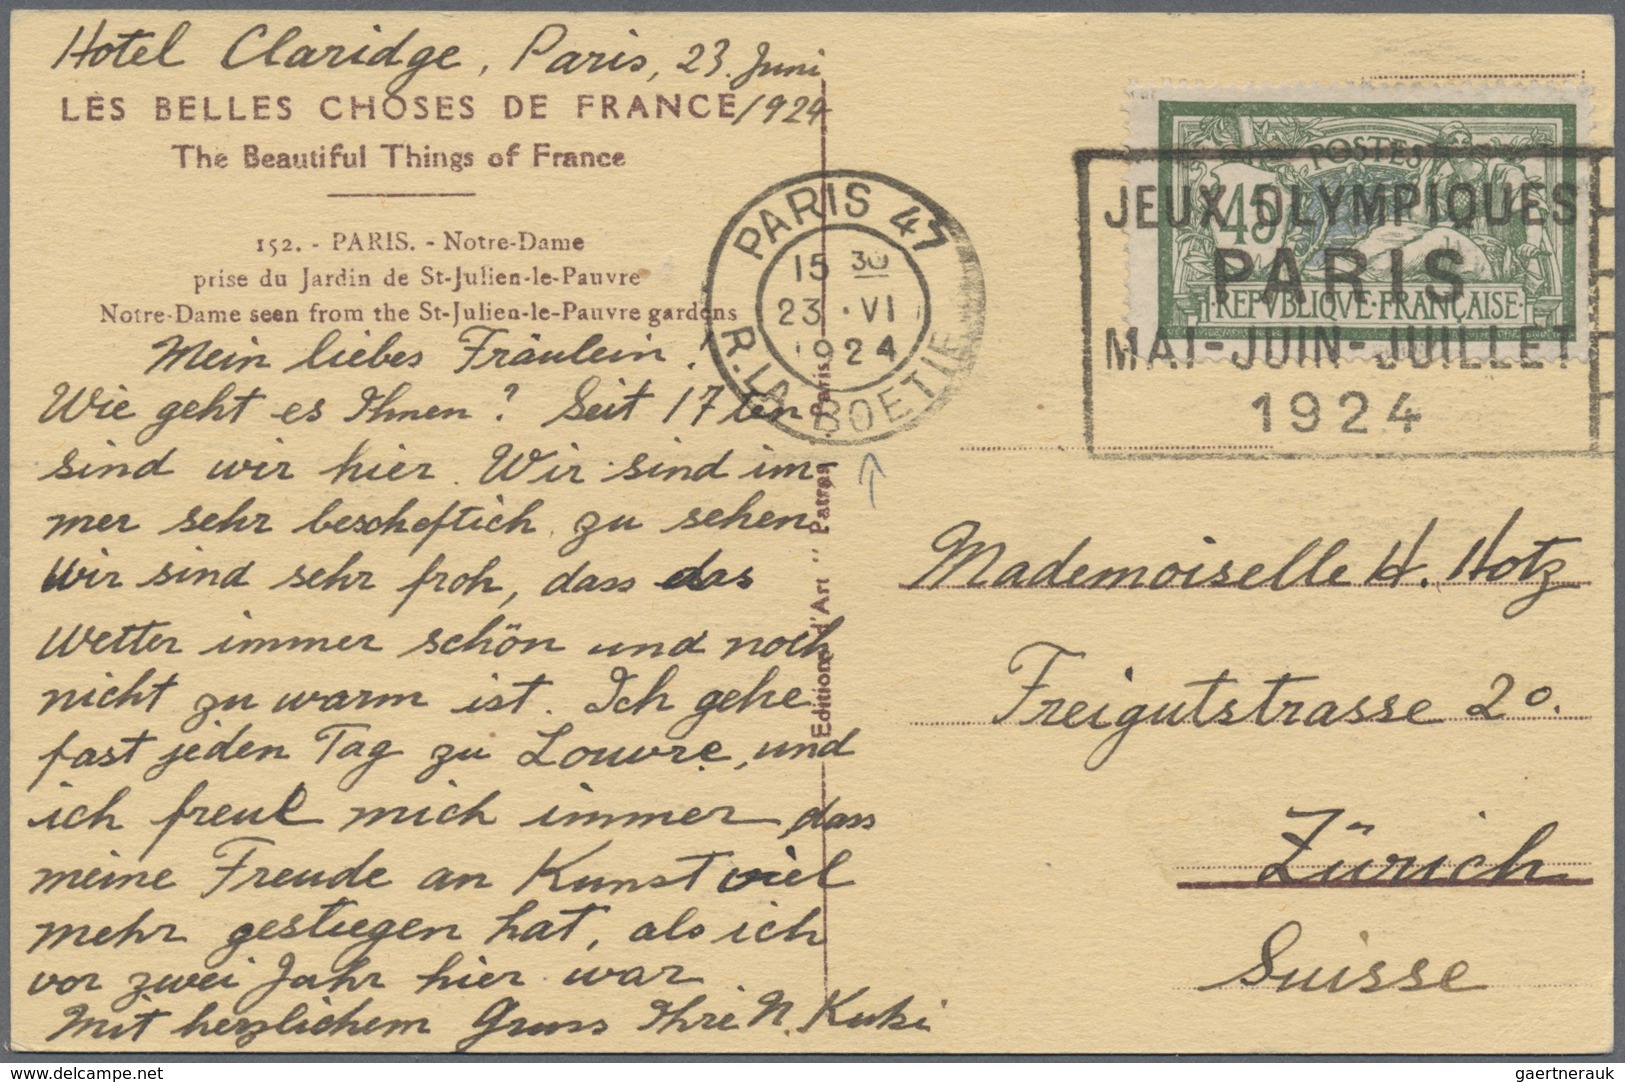 Hotel Claridge, Paris, 23. Juni
/1924
LES BELLES CHOSES DE FRANCE
The Beautiful Things of France
152. - PARIS. - Notre-Dame
prise du Jardin de St-Julien-le-Pauvre
Notre-Dame seen from the St-Julien-le-Pauvre gardens
Mein liebes Fräulein!
Wie geht es Ihnen? Seit 17 ten
sind wir hier. Wir sind im
mer sehr bescheftich zu sehen.
Wir sind sehr froh, dass das
Wetter immer schön und noch
nicht zu warm ist. Ich gehe
fast jeden Tag zu Louvre, und
ich freue mich immer, dass
meine Freude an Kunst viel
mehr gestiegen hat, als ich
vor zwei Jahr hier war
Mit herzlichem Gruss Ihre N. Kuki
Editions d'Art "Patras" Paris
PARIS 47
15 30
23 · VI
1924
R. LA BOETIE
POSTES
45
REPVBLIQVE·FRANÇAISE
JEUX OLYMPIQUES
PARIS
MAI-JUIN-JUILLET
1924
Mademoiselle H. Hotz
Freigutstrasse 20.
Zürich
Suisse
www.delcampe.net
gaertnerauk